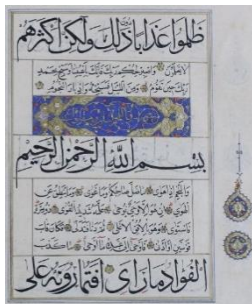 ظلموا عذابا دون ذلك ولكن أكثرهم
لا يعلمون واصبر لحكم ربك فإنك بأعيننا وسبح بحمد
ربك حين تقوم ومن الليل فسبحه وإدبار النجوم
بسم الله الرحمن الرحيم
والنجم إذا هوى ما ضل صاحبكم وما غوى وما ينطق عن
الهوى إن هو إلا وحي يوحى علمه شديد القوى ذو مرة
فاستوى وهو بالأفق الأعلى ثم دنا فتدلى فكان قاب
قوسين أو أدنى فأوحى إلى عبده ما أوحى ما كذب
الفؤاد ما رأى أفتمارونه على